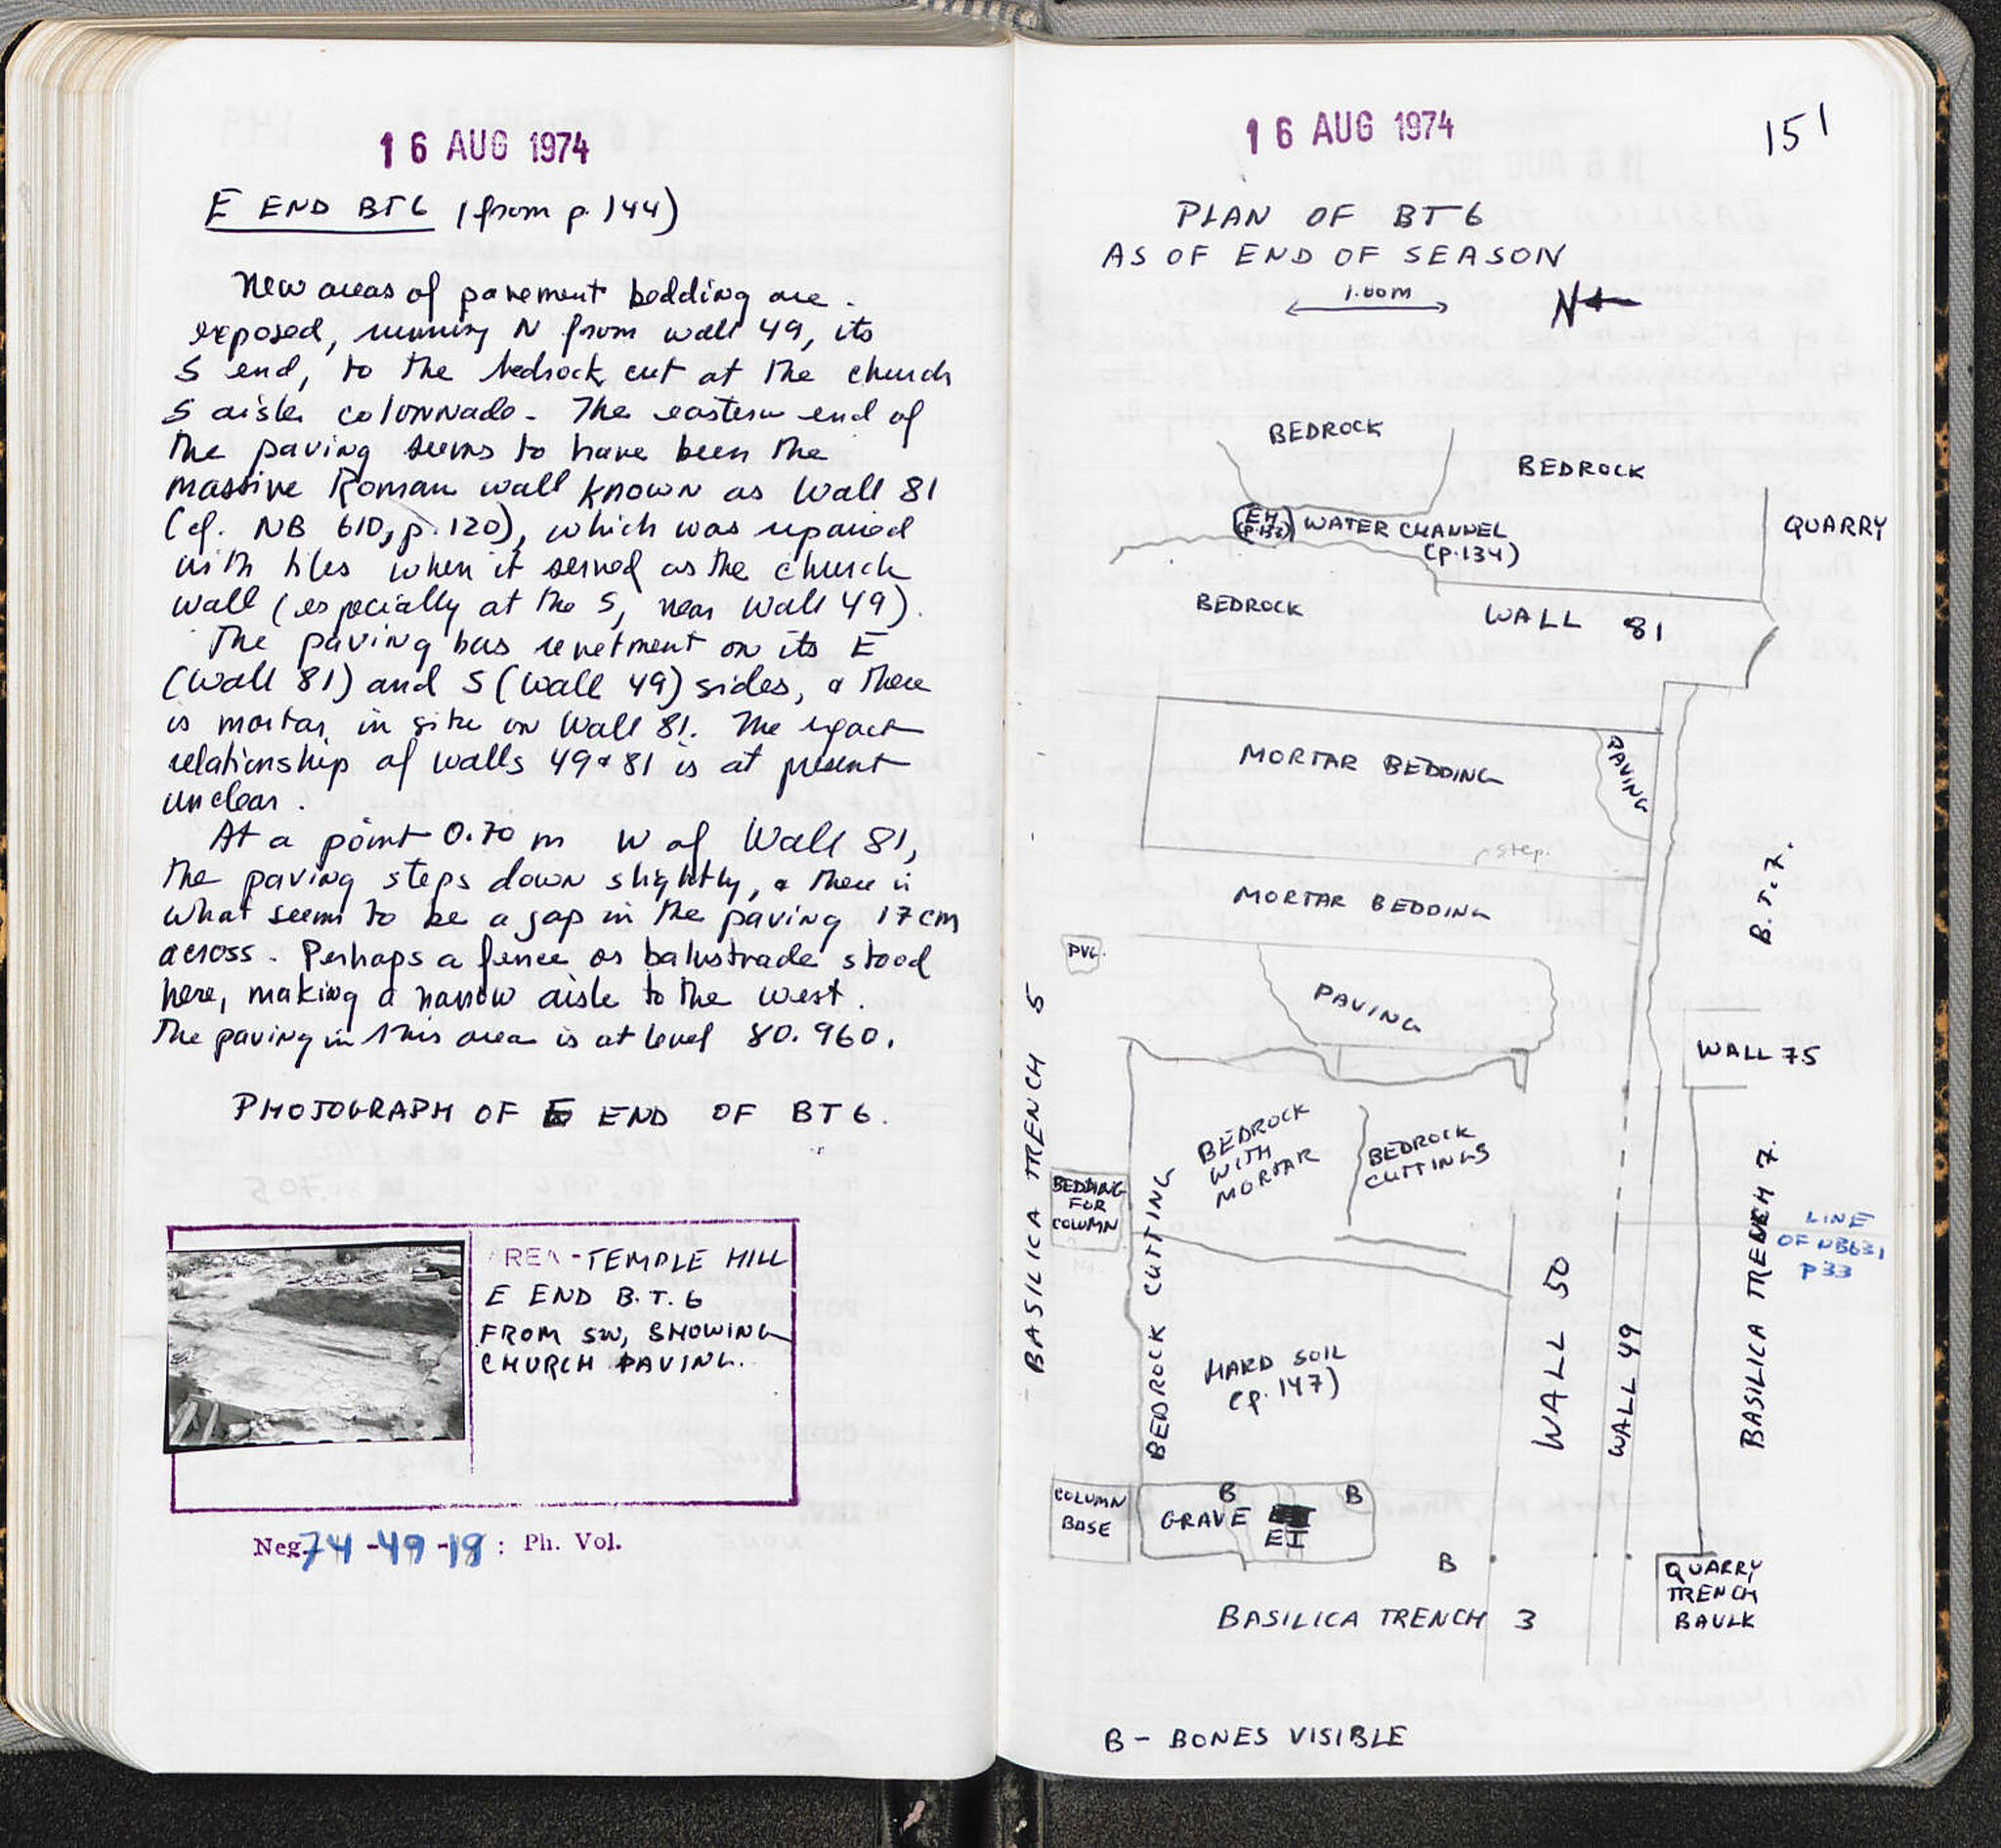 16 AUG 1974
E END BT6 (from p. 144)
New areas of pavement bedding are
exposed, running N from wall 49, its
S end, to the bedrock cut at the church
S aisle colonnade. The eastern end of
the paving seems to have been the
massive Roman wall known as Wall 81
(cf. NB 610, p. 120), which was repaired
with tiles when it served as the church
wall (especially at the S, near Wall 49).
The paving has revetment on its E
(Wall 81) and S (Wall 49) sides, & there
is mortar in situ on Wall 81. The exact
relationship of walls 49 & 81 is at present
unclear.
At a point 0.70 m W of Wall 81,
the paving steps down slightly, & there is
what seems to be a gap in the paving 17 cm
across. Perhaps a fence or balustrade stood
here, making a narrow aisle to the west.
The paving in this area is at level 80.960.
PHOTOGRAPH OF E END OF BT6.
AREA - TEMPLE HILL
E END B.T. 6
FROM SW, SHOWING
CHURCH PAVING.
Neg. 74-49-18 : Ph. Vol.
16 AUG 1974
151
PLAN OF BT6
AS OF END OF SEASON
1.00m
N
BEDROCK
BEDROCK
EH
WATER CHANNEL
(p.134)
QUARRY
BEDROCK
WALL 81
MORTAR BEDDING
PAVING
step.
MORTAR BEDDING
B.T. 7.
PVG.
PAVING
BASILICA TRENCH 5
WALL 75
BEDROCK
WITH
MORTAR
BEDROCK
CUTTINGS
BEDDING
FOR
COLUMN
BEDROCK CUTTING
LINE
OF NB631
P33
BASILICA TRENCH 7.
WALL 50
WALL 49
HARD SOIL
(p. 147)
COLUMN
BASE
B
B
GRAVE
EI
B
QUARRY
TRENCH
BAULK
BASILICA TRENCH 3
B - BONES VISIBLE